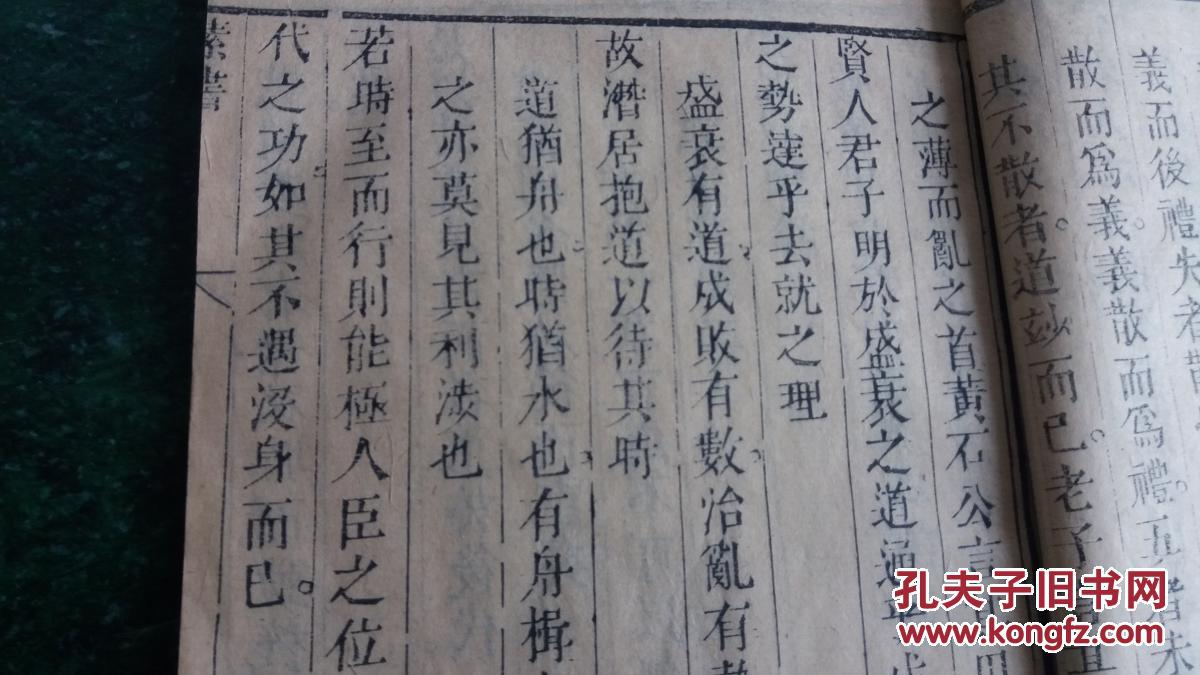 義而後禮失者
散而爲義義散而爲禮五者未
其不散者道玅而已老子言
之薄而亂之首黃石公言
賢人君子明於盛衰之道通乎成
之勢達乎去就之理
盛衰有道成敗有數治亂有
故潛居抱道以待其時
道猶舟也時猶水也有舟楫
之亦莫見其利涉也
若時至而行則能極人臣之位
代之功如其不遇沒身而已
素書
孔夫子旧书网
www.kongfz.com